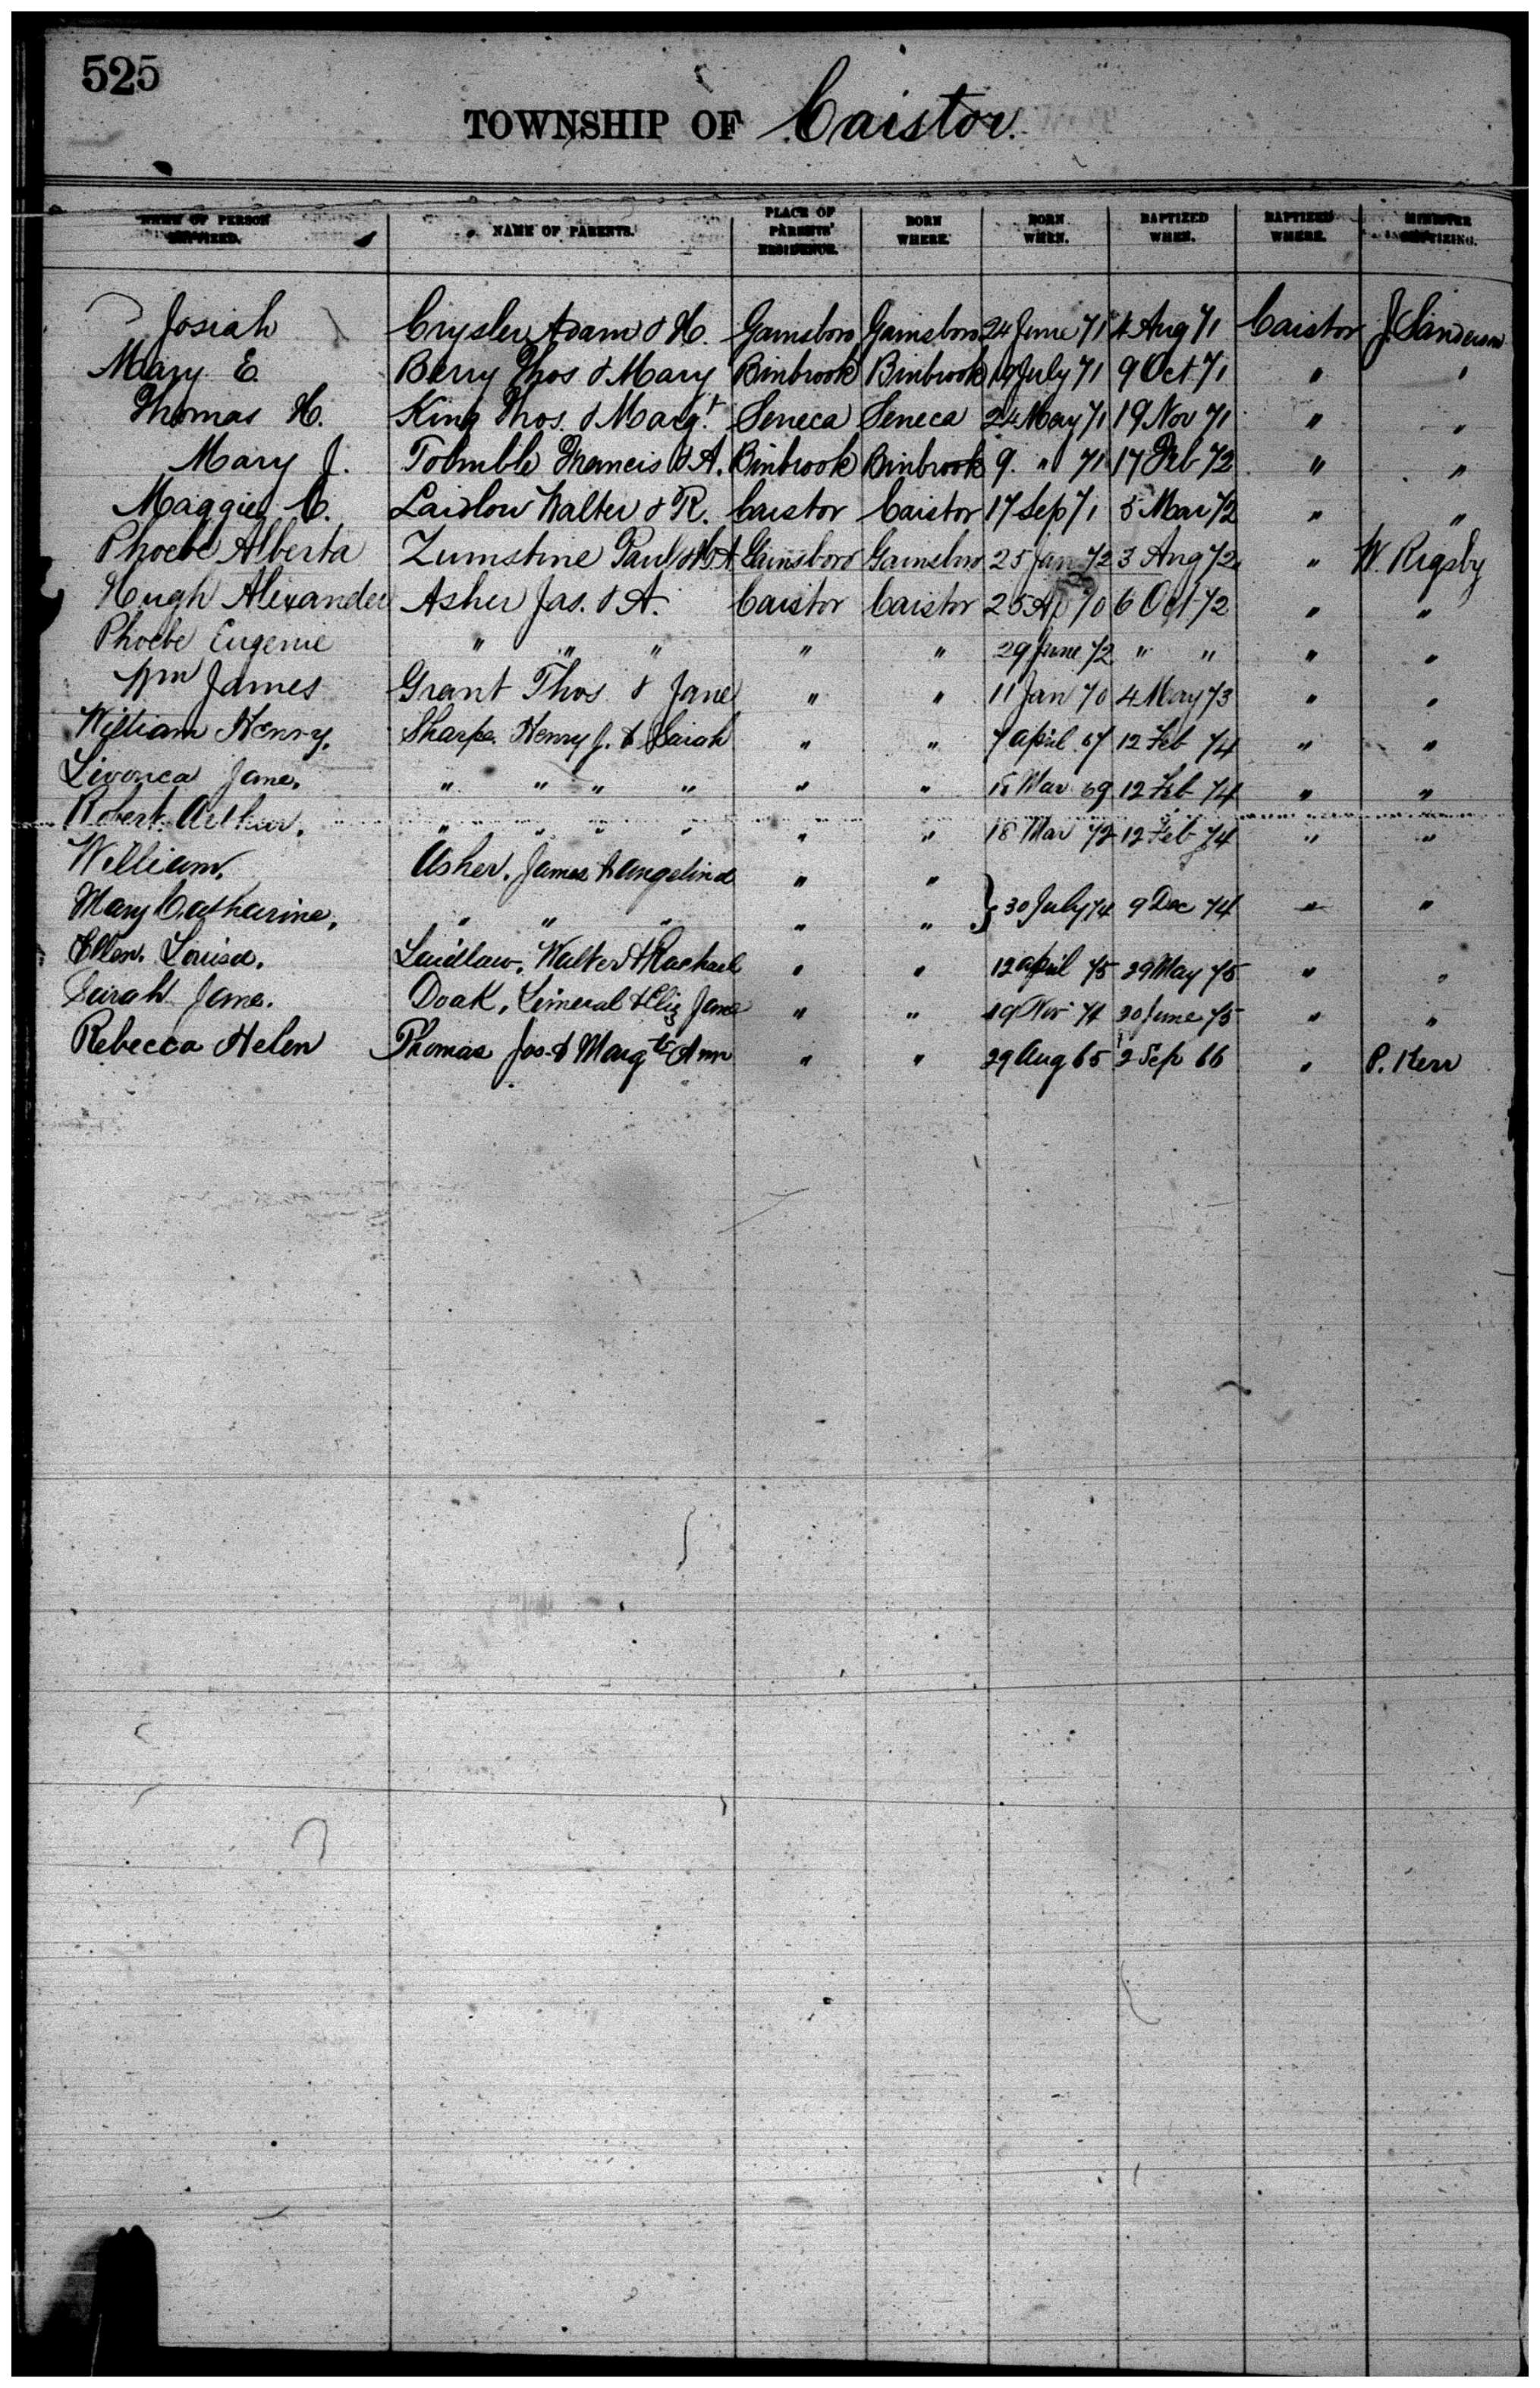 525
TOWNSHIP OF Caistor.
NAME OF PERSON BAPTIZED. NAME OF PARENTS. PLACE OF PARENTS' RESIDENCE. BORN WHERE. BORN WHEN. BAPTIZED WHEN. BAPTIZED WHERE. MINISTER BAPTIZING.
Josiah Crysler Adam & H. Gainsboro Gainsboro 24 June 71 4 Aug 71 Caistor J. Sanderson
Mary E. Berry Thos & Mary Binbrook Binbrook 19 July 71 9 Oct 71 " "
Thomas H. King Thos. & Margt. Seneca Seneca 24 May 71 19 Nov 71 " "
Mary J. Francis & A. Binbrook Binbrook 9. " 71 17 Feb 72 " "
Maggie C. Laidlow Walter & R. Caistor Caistor 17 Sep 71 5 Mar 72 " "
Phoebe Alberta Zumstine Paul & Gainsboro Gainsboro 25 Jan 72 3 Aug 72 " W. Rigsby
Hugh Alexander Asher Jas. & A. Caistor Caistor 25 Ap 70 6 Oct 72 " "
Phoebe Eugenie " " " " " 29 June 72 " " " "
Wm James Grant Thos & Jane " " 11 Jan 70 4 May 73 " "
William Henry. Sharpe. Henry J. & Sarah " " 7 April 67 12 Feb 74 " "
Jane. " " " " " " Mar 69 12 Feb 74 " "
Robert Arthur. " " " " " " 18 Mar 72 12 Feb 74 " "
William. Asher. James & Angelina " "
Mary Catharine. " " " " " } 30 July 74 9 Dec 74 " "
Ellen. Louisa. Laidlaw. Walter & Rachael " " 12 April 75 29 May 75 " "
Sarah Jane. Doak, & Eliz Jane " " 19 Nov 74 20 June 75 " "
Rebecca Helen Thomas Jas. & Margte Ann " " 29 Aug 65 2 Sep 66 " P. Kerr